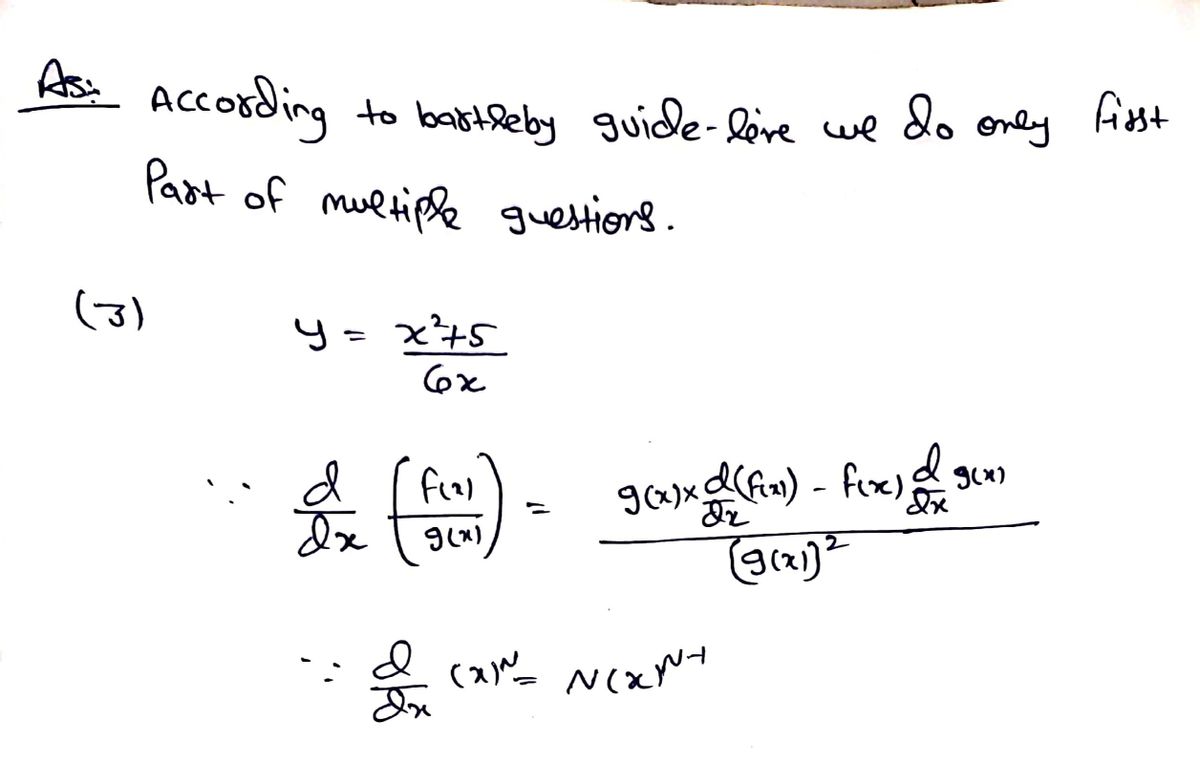 As:- According to bartleby guide-line we do only first
Part of multiple questions.
(3) y = x²+5 / 6x
∵ d/dx (f(x)/g(x)) = g(x)x d(f(x))/dx - f(x) d/dx g(x) / (g(x))²
∵ d/dx (x)^N = N(x)^N-1